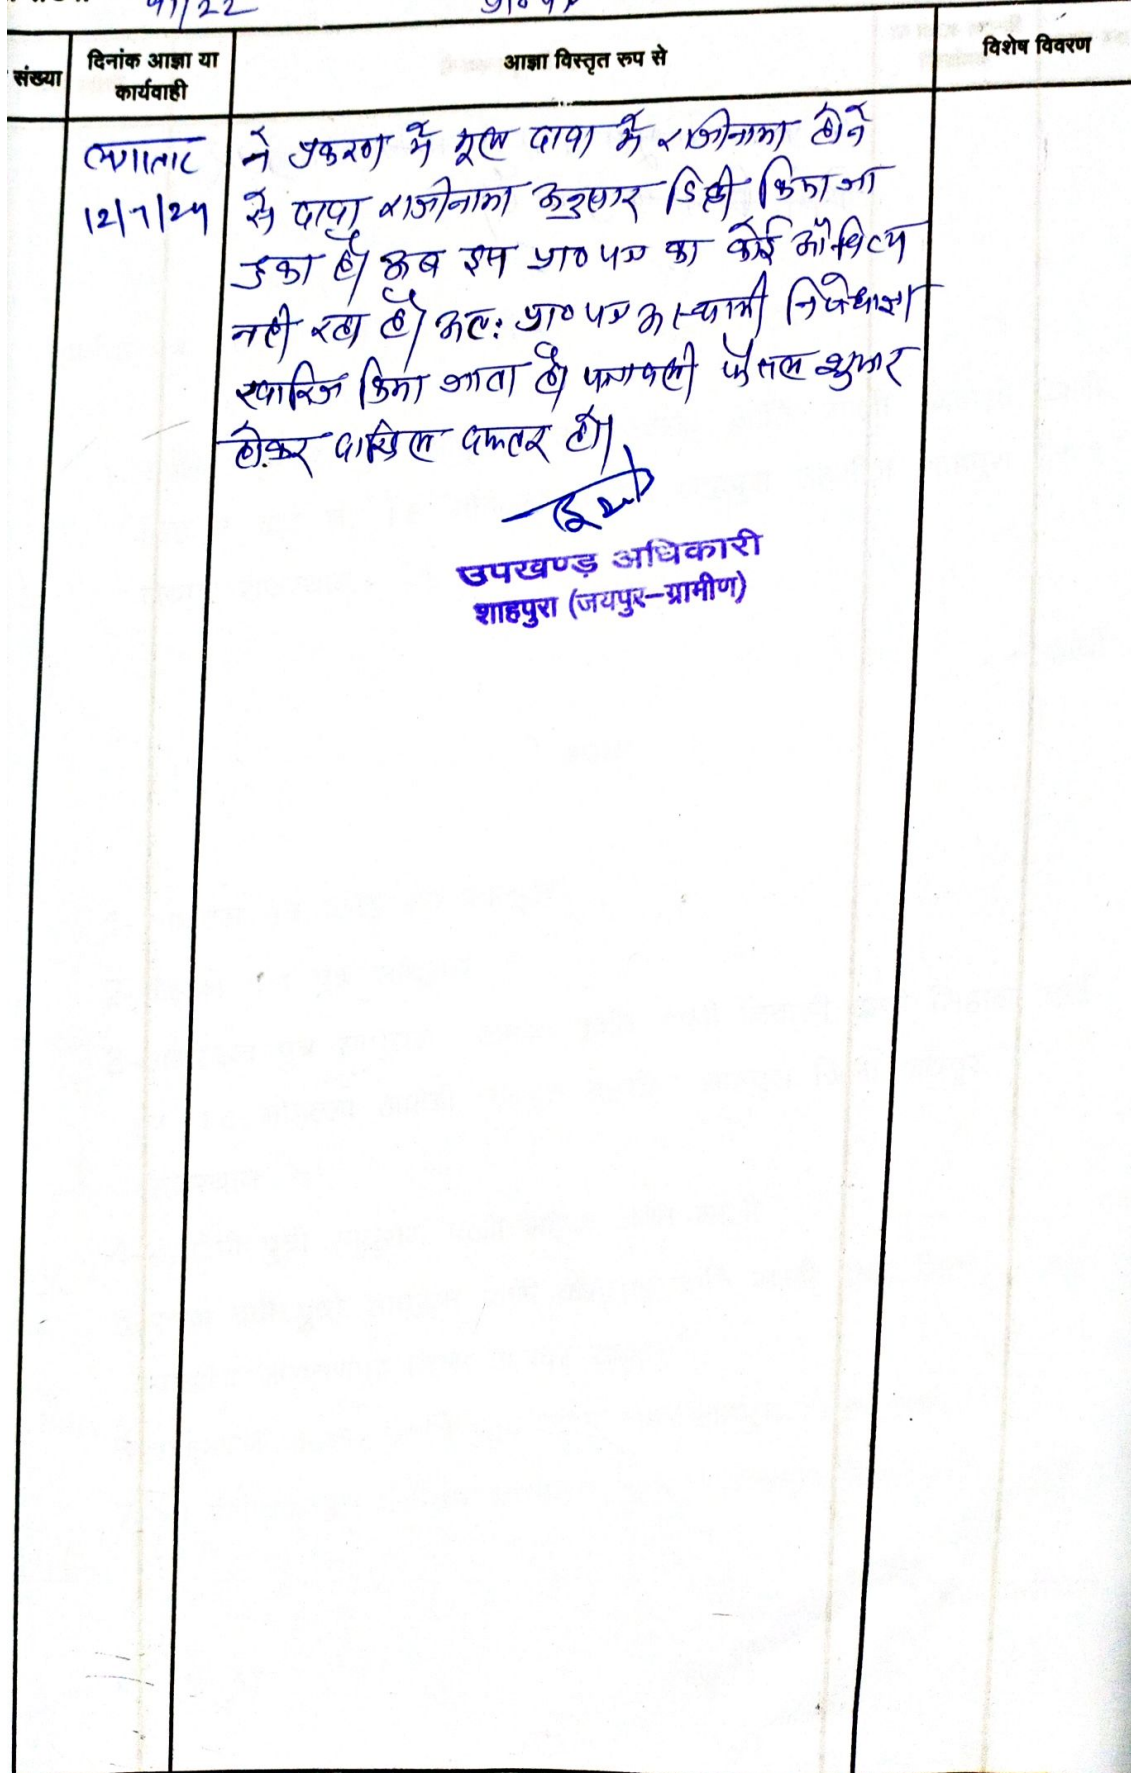 संख्या
दिनांक आज्ञा या
कार्यवाही
आज्ञा विस्तृत रुप से
विशेष विवरण
लगातार
12/7/24
ने प्रकरण में मूल दावा में राजीनामा होने
से दावा राजीनामा अनुसार डिक्री किया जा
चुका है। अब इस प्रा० पत्र का कोई औचित्य
नही रहा है। अतः प्रा० पत्र अस्थायी निषेधाज्ञा
खारिज किया जाता है। पत्रावली फैसल शुमार
होकर दाखिल दफ्तर हो।
उपखण्ड अधिकारी
शाहपुरा (जयपुर-ग्रामीण)